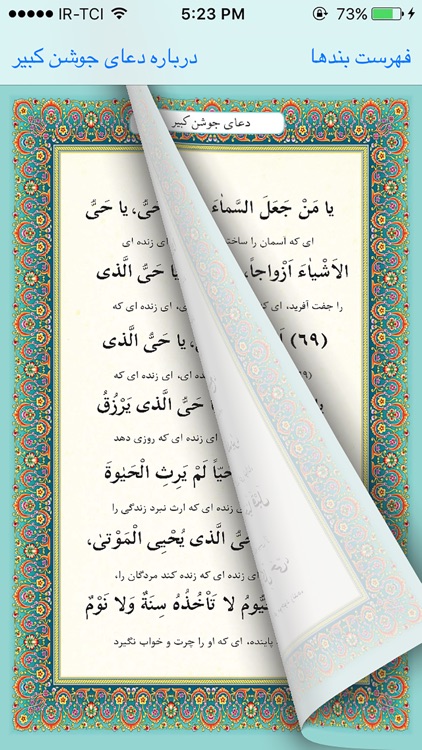 IR-TCI 5:23 PM 73%
فهرست بندها درباره دعای جوشن کبیر
دعای جوشن کبیر
یا مَنْ جَعَلَ السَّمٰاءَ حَیُّ، یا حَیُّ
ای که آسمان را ای زنده ای
الاَشْیٰاءَ اَزْواجاً، یا حَیُّ الَّذی
را جفت آفرید، ای ای زنده ای که
(۶۹) یا حَیُّ الَّذی
ای، ای زنده ای که
حَیُّ الَّذی یَرْزُقُ
زنده ای که روزی دهد
حَیّاً لَمْ یَرِثِ الْحَیٰوةَ
زنده ای که ارث نبرد زندگی را
الَّذی یُحْیِی الْمَوْتیٰ،
زنده ای که زنده کند مردگان را،
لا تَاْخُذُهُ سِنَةٌ وَلا نَوْمٌ
پاینده، ای که او را چرت و خواب نگیرد